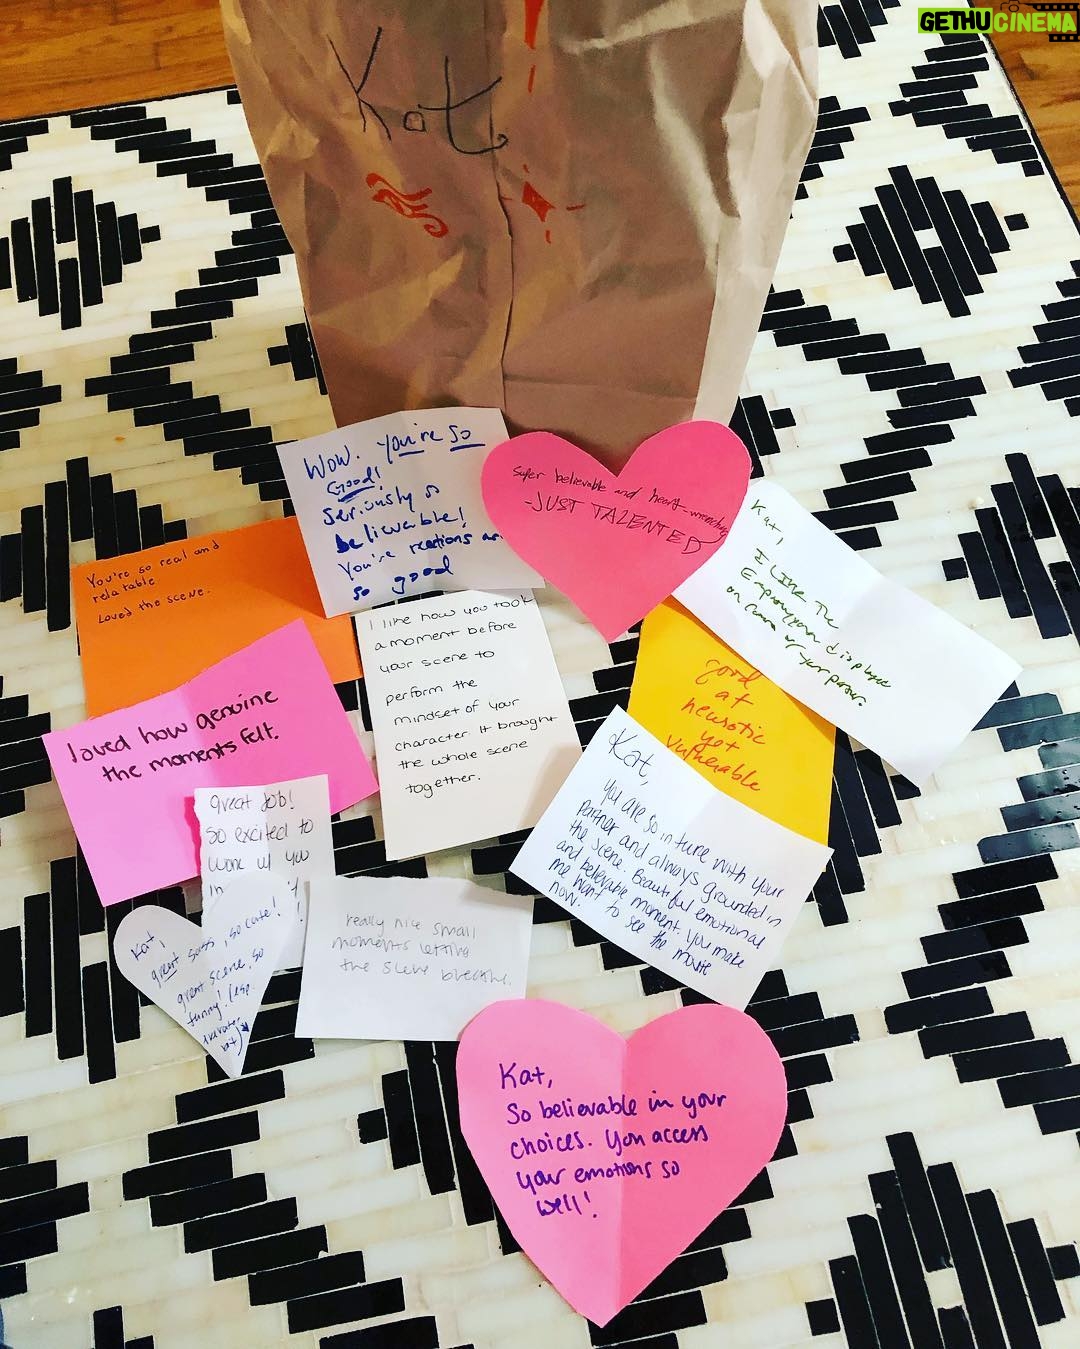 GETHUCINEMA
Kat
Wow. You're so
Good!
Seriously so
believable!
You're reactions are
so good
super believable and heart-wrenching
-JUST TALENTED
Kat,
I Like The
on
of your partner.
You're so real and
relatable
Loved the scene.
I like how you took
a moment before
your scene to
perform the
mindset of your
character it brought
the whole scene
together.
good
at
neurotic
yet
vulnerable
loved how genuine
the moments felt.
Kat,
You are so in tune with your
partner and always grounded in
the scene. Beautiful emotional
and believable moment. You make
me want to see the movie
now.
great job!
So excited to
work w/ you
in
really nice small
moments letting
the scene breathe.
Kat,
great so cute!
great scene, so
funny! (esp.
Kat,
So believable in your
choices. You access
your emotions so
well!